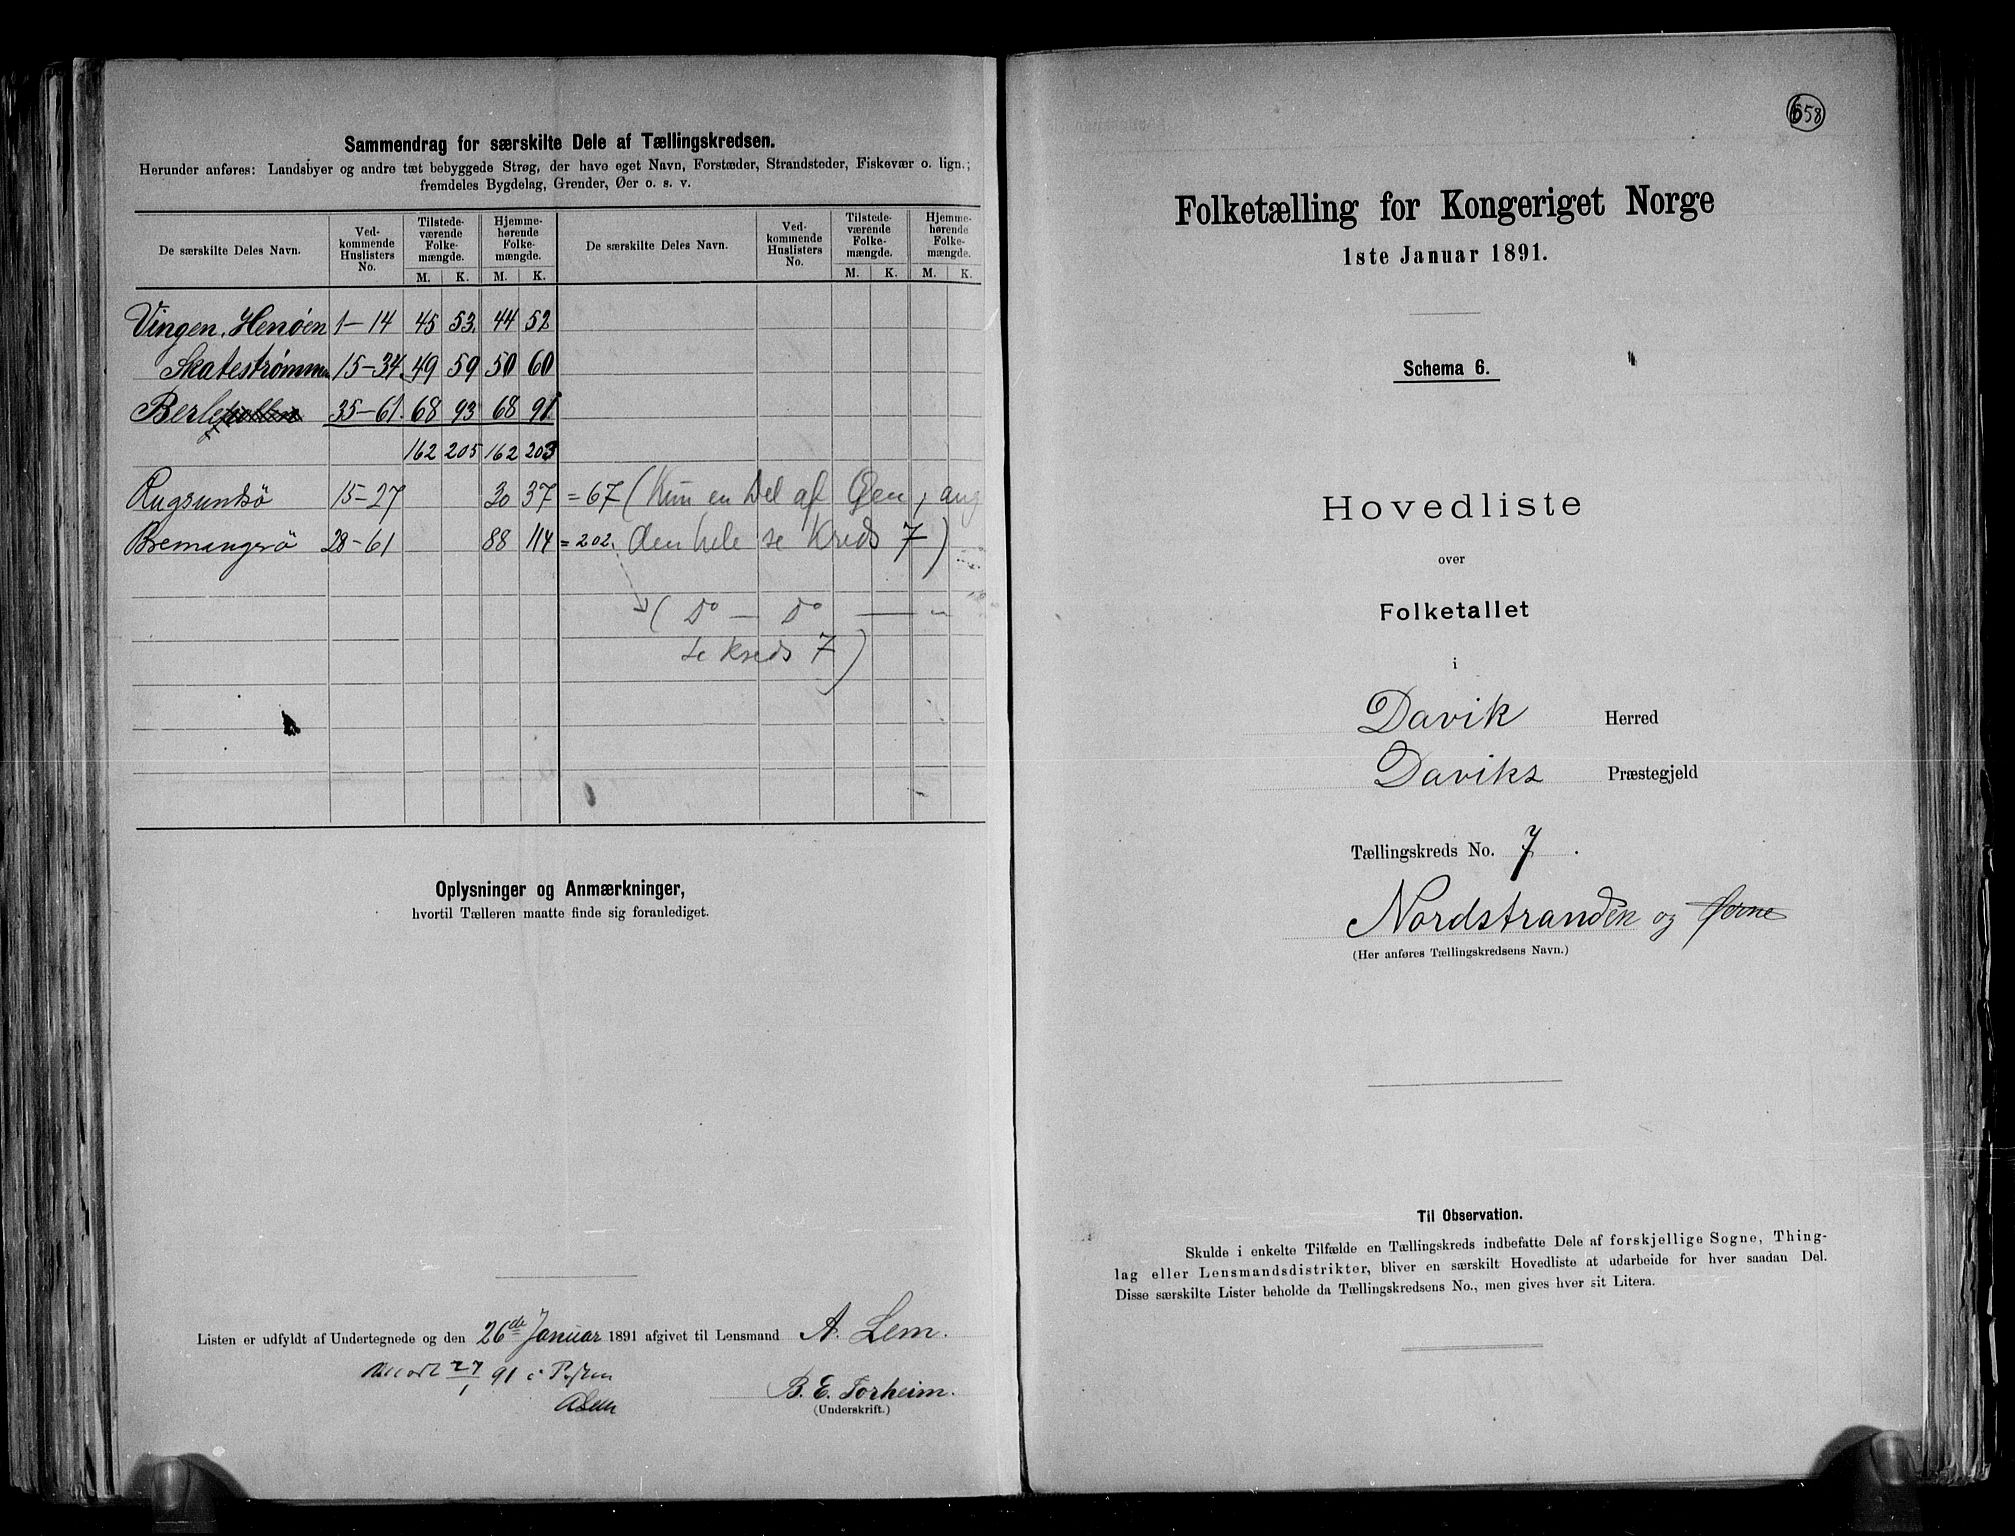 Sammendrag for særskilte Dele af Tællingskredsen.
Herunder anføres: Landsbyer og andre tæt bebyggede Strøg, der have eget Navn, Forstæder, Strandsteder, Fiskevær o. lign.;
fremdeles Bygdelag, Grender, Øer o. s. v.
De særskilte Deles Navn. Ved-kommende Huslisters No. Tilstede-værende Folke-mængde. Hjemme-hørende Folke-mængde. De særskilte Deles Navn. Ved-kommende Huslisters No. Tilstede-værende Folke-mængde. Hjemme-hørende Folke-mængde.
M. K. M. K. M. K. M. K.
Vingen, Henøen 1-14 45 53 44 52
Skatestrømmen 15-34 49 59 50 60
Berlepollen 35-61 68 93 68 91
162 205 162 203
Rugsundsø 15-27 30 37 = 67 (Kun en Del af Øen, ang
Bremangerø 28-61 88 114 = 202 den hele se Kreds 7)
(Do — Do —
se Kreds 7)
Oplysninger og Anmærkninger,
hvortil Tælleren maatte finde sig foranlediget.
Listen er udfyldt af Undertegnede og den 26de Januar 1891 afgivet til Lensmand A. Lem.
27/1 91
ALem
B. E. Torheim.
(Underskrift.)
658
Folketælling for Kongeriget Norge
1ste Januar 1891.
Schema 6.
Hovedliste
over
Folketallet
i
Davik Herred
Daviks Præstegjeld
Tællingskreds No. 7.
Nordstranden og Øerne
(Her anføres Tællingskredsens Navn.)
Til Observation.
Skulde i enkelte Tilfælde en Tællingskreds indbefatte Dele af forskjellige Sogne, Thing-
lag eller Lensmandsdistrikter, bliver en særskilt Hovedliste at udarbeide for hver saadan Del.
Disse særskilte Lister beholde da Tællingskredsens No., men gives hver sit Litera.